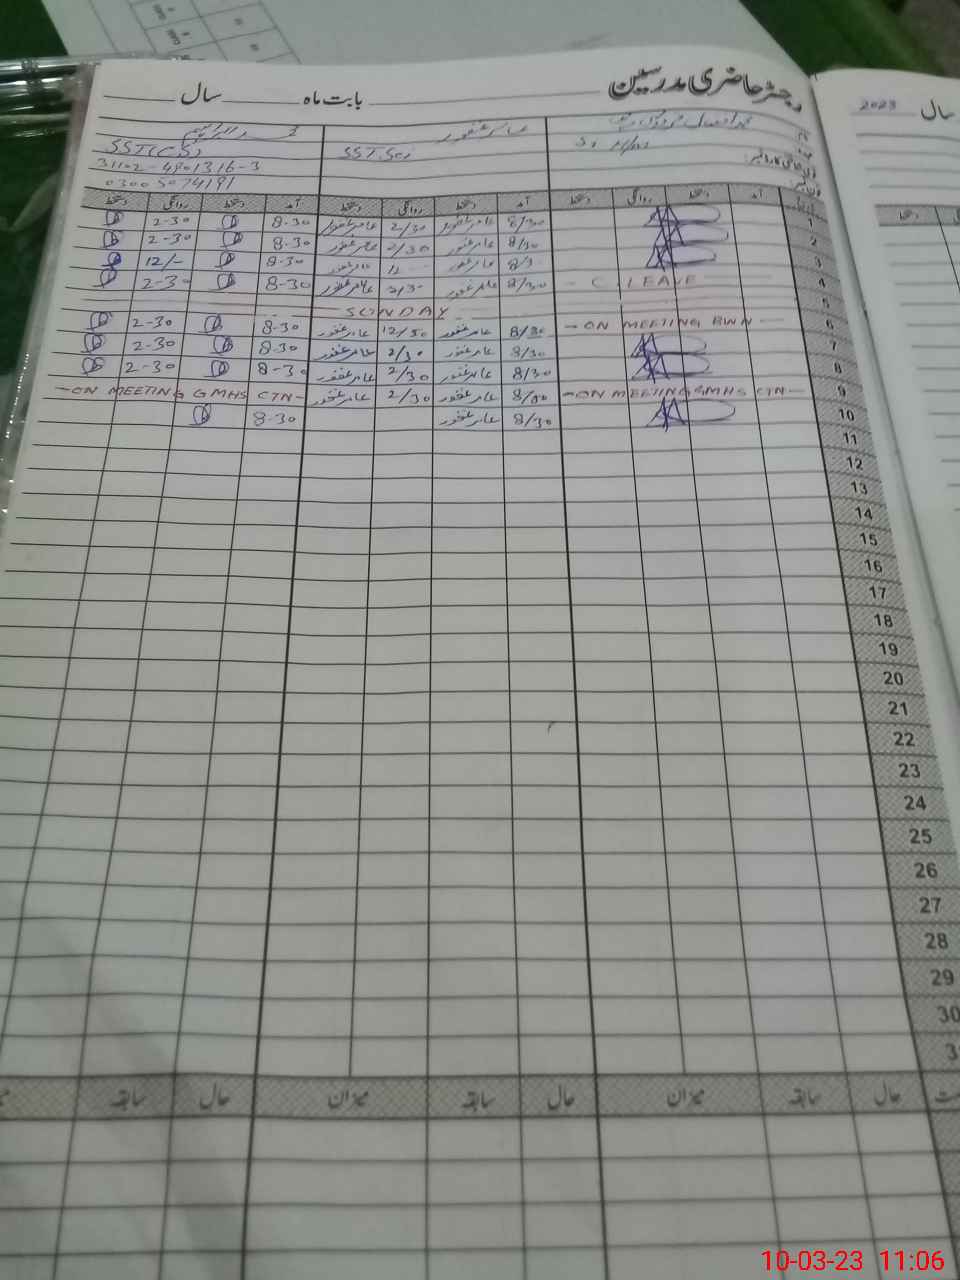 رجسٹر حاضری مدرسین
بابت ماہ سال
2023 سال
عامر غفور
SST(CS) SST.Sci
31102-4901316-3
03005074191
دستخط روانگی دستخط آمد دستخط روانگی دستخط آمد دستخط روانگی دستخط آمد
2-30 8-30 عامر غفور 2/30 عامر غفور 8/30 1
2-30 8-30 عامر غفور 2/30 عامر غفور 8/30 2
12/- 8-30 عامر غفور 12 عامر غفور 8/3 3
2-30 8-30 عامر غفور 2/30 عامر غفور 8/30 - C. LEAVE - 4
SUNDAY 5
2-30 8-30 عامر غفور 12/30 عامر غفور 8/30 - ON MEETING BWN - 6
2-30 8-30 عامر غفور 2/30 عامر غفور 8/30 7
2-30 8-30 عامر غفور 2/30 عامر غفور 8/30 8
- ON MEETING GMHS CTN - عامر غفور 2/30 عامر غفور 8/30 - ON MEETING GMHS CTN - 9
8-30 عامر غفور 8/30 10
11
12
13
14
15
16
17
18
19
20
21
22
23
24
25
26
27
28
29
30
3
سابقہ حال میزان سابقہ حال میزان سابقہ حال
10-03-23 11:06